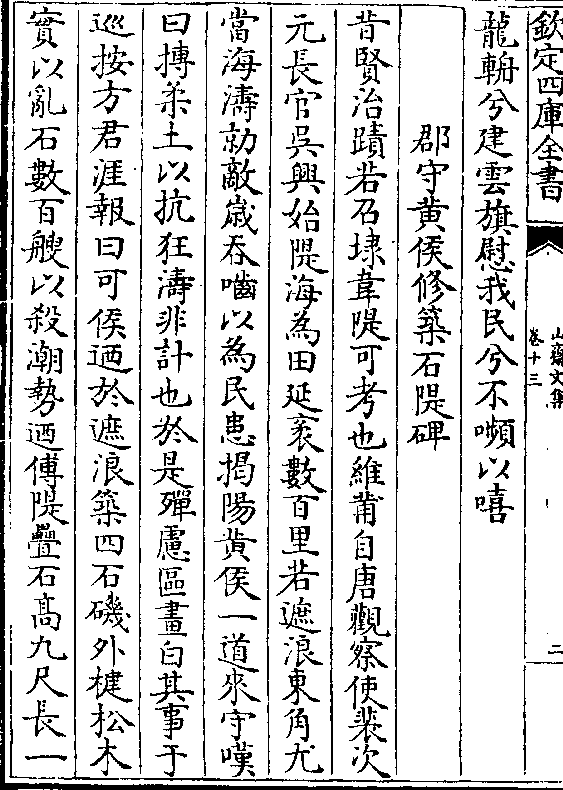 欽定四庫全書
山齋文集
卷十三
二
龍輈兮建雲旗慰我民兮不嚬以嘻
郡守黄侯修築石隄碑
昔賢治蹟若召埭韋隄可考也維莆自唐觀察使裴次
元長官吳興始隄海為田延袤數百里若遮浪東角尤
當海濤勍敵歳吞嚙以為民患揭陽黄侯一道來守嘆
曰摶柔土以抗狂濤非計也於是殫慮區畫白其事于
巡按方君涯報曰可侯迺於遮浪築四石磯外楗松木
實以亂石數百艘以殺潮勢迺傅隄疊石髙九尺長一